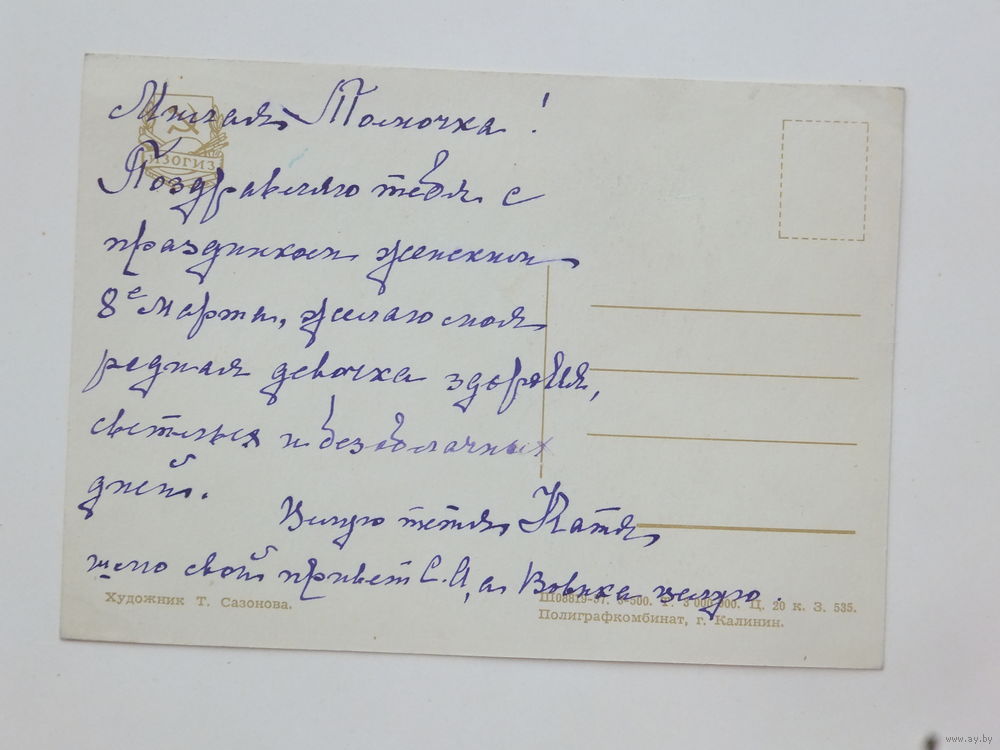 Милая Томочка!
ИЗОГИЗ
Поздравляю тебя с
праздником женским
8е марта, желаю моя
родная девочка здоровья,
светлых и безоблачных
дней.
Целую тетя Катя
шлю свой привет С.А, а Вовика целую.
Художник Т. Сазонова.
Ш08819-57. 5-500. Т. 3 000 000. Ц. 20 к. З. 535.
Полиграфкомбинат, г. Калинин.
www.ay.by